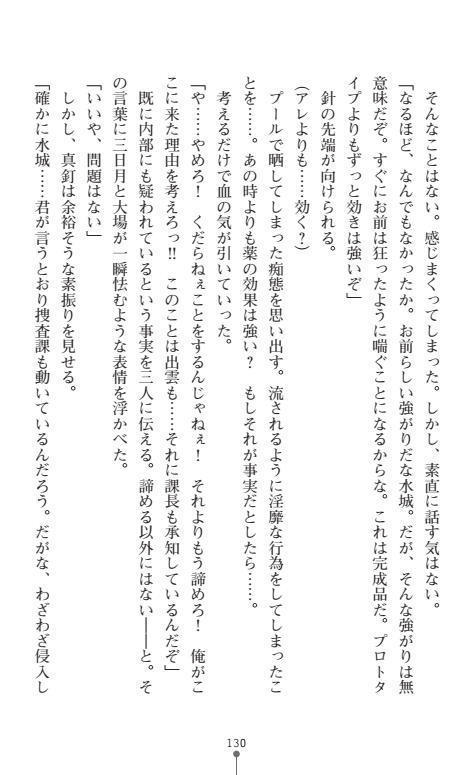 そんなことはない。感じまくってしまった。しかし、素直に話す気はない。
「なるほど、なんでもなかったか。お前らしい強がりだな水城。だが、そんな強がりは無
意味だぞ。すぐにお前は狂ったように喘ぐことになるからな。これは完成品だ。プロトタ
イプよりもずっと効きは強いぞ」
針の先端が向けられる。
（アレよりも……効く？）
プールで晒してしまった痴態を思い出す。流されるように淫靡な行為をしてしまったこ
とを……。あの時よりも薬の効果は強い？　もしそれが事実だとしたら……。
考えるだけで血の気が引いていった。
「や……やめろ！　くだらねぇことをするんじゃねぇ！　それよりもう諦めろ！　俺がこ
こに来た理由を考えろっ!!　このことは出雲も……それに課長も承知しているんだぞ」
既に内部にも疑われているという事実を三人に伝える。諦める以外にはない――と。そ
の言葉に三日月と大場が一瞬怯むような表情を浮かべた。
「いいや、問題はない」
しかし、真釘は余裕そうな素振りを見せる。
「確かに水城……君が言うとおり捜査課も動いているんだろう。だがな、わざわざ侵入し
130